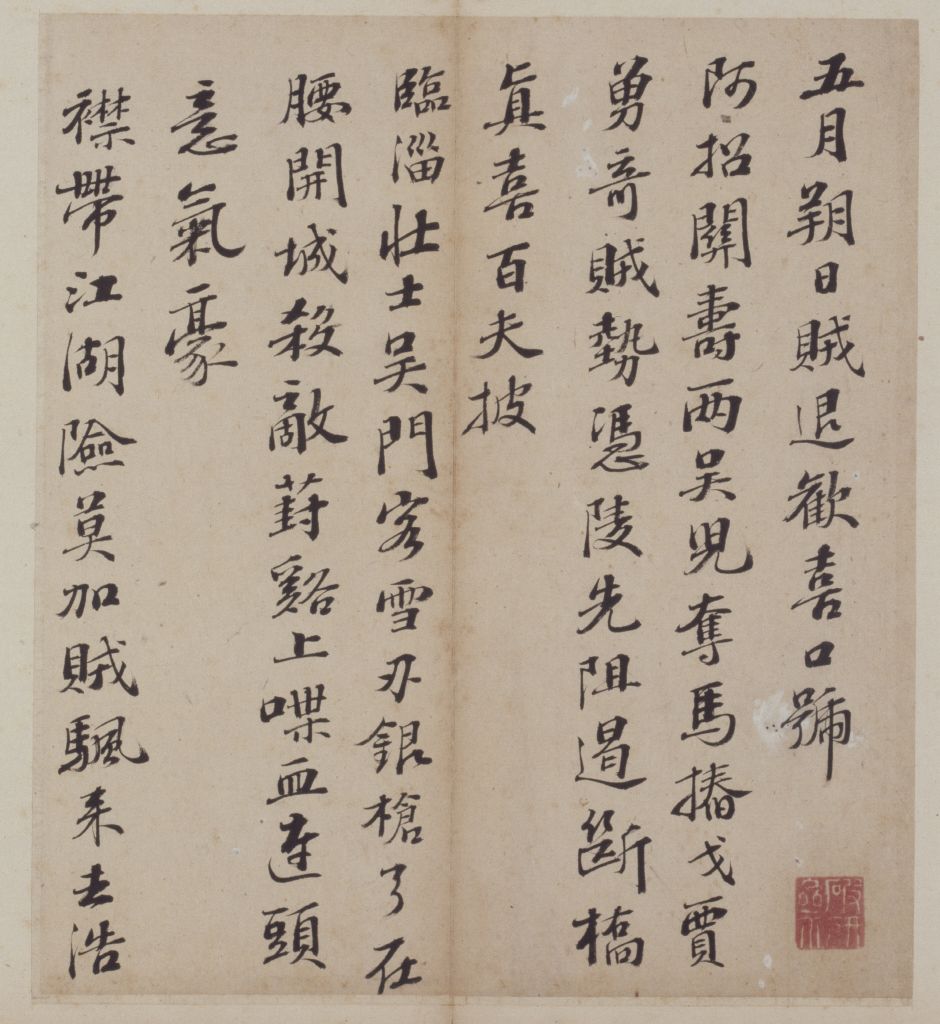 五月朔日賊退歡喜口號
阿招關壽兩吳児奪馬摏戈賈
勇竒賊勢憑陵先阻遏斷橋
真喜百夫披
臨淄壯士吳門客雪刃銀槍弓在
腰開城殺敵葑谿上喋血連頭
意氣豪
襟帶江湖險莫加賊颿来去浩